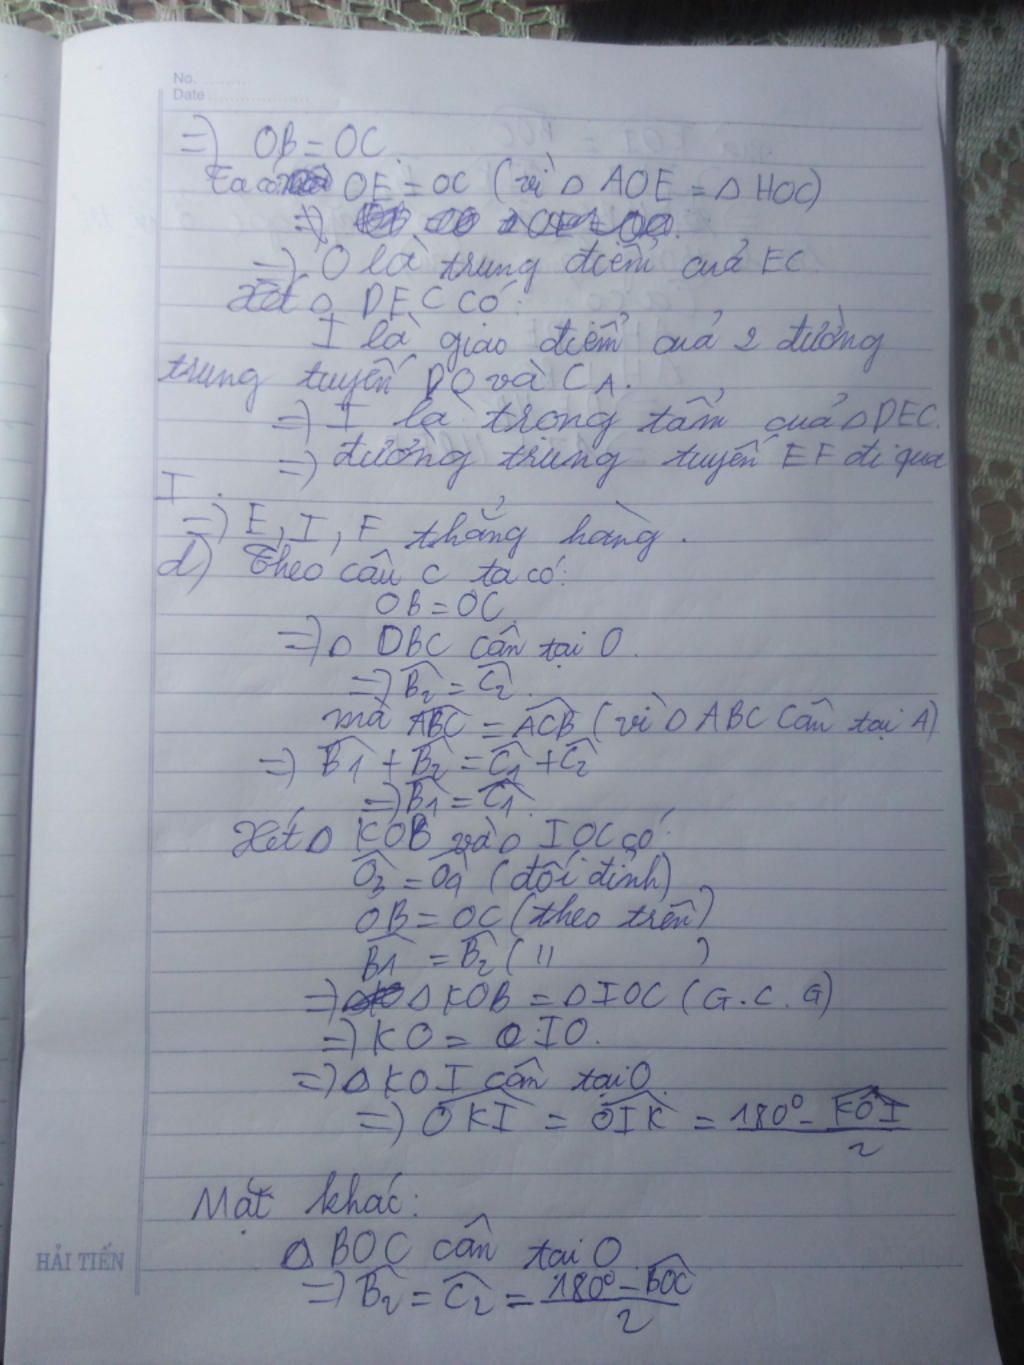 No. ........
Date ..................
=) OB = OC.
Ta có OE = OC (vì △ AOE = △ HOC)
=)
=) O là trung điểm của EC.
Xét △ DEC có:
I là giao điểm của 2 đường
trung tuyến DO và CA.
=) I là trọng tâm của △ DEC.
=) đường trung tuyến EF đi qua
I.
=) E, I, F thẳng hàng.
d) Theo câu c ta có:
OB = OC
=) △ OBC cân tại O.
=) B̂2 = Ĉ2.
mà ABC = ACB (vì △ ABC cân tại A)
=) B̂1 + B̂2 = Ĉ1 + Ĉ2
=) B̂1 = Ĉ1.
Xét △ KOB và △ IOC có:
Ô3 = Ô4 (đối đỉnh)
OB = OC (theo trên)
B̂1 = B̂2 ( 11 )
=) △ KOB = △ IOC (G.C.G)
=) KO = IO.
=) △ KOI cân tại O.
=) OKI = OIK = 180° - KOI
2
Mặt khác:
△ BOC cân tại O
HẢI TIẾN
=) B̂2 = Ĉ2 = 180° - BOC
2